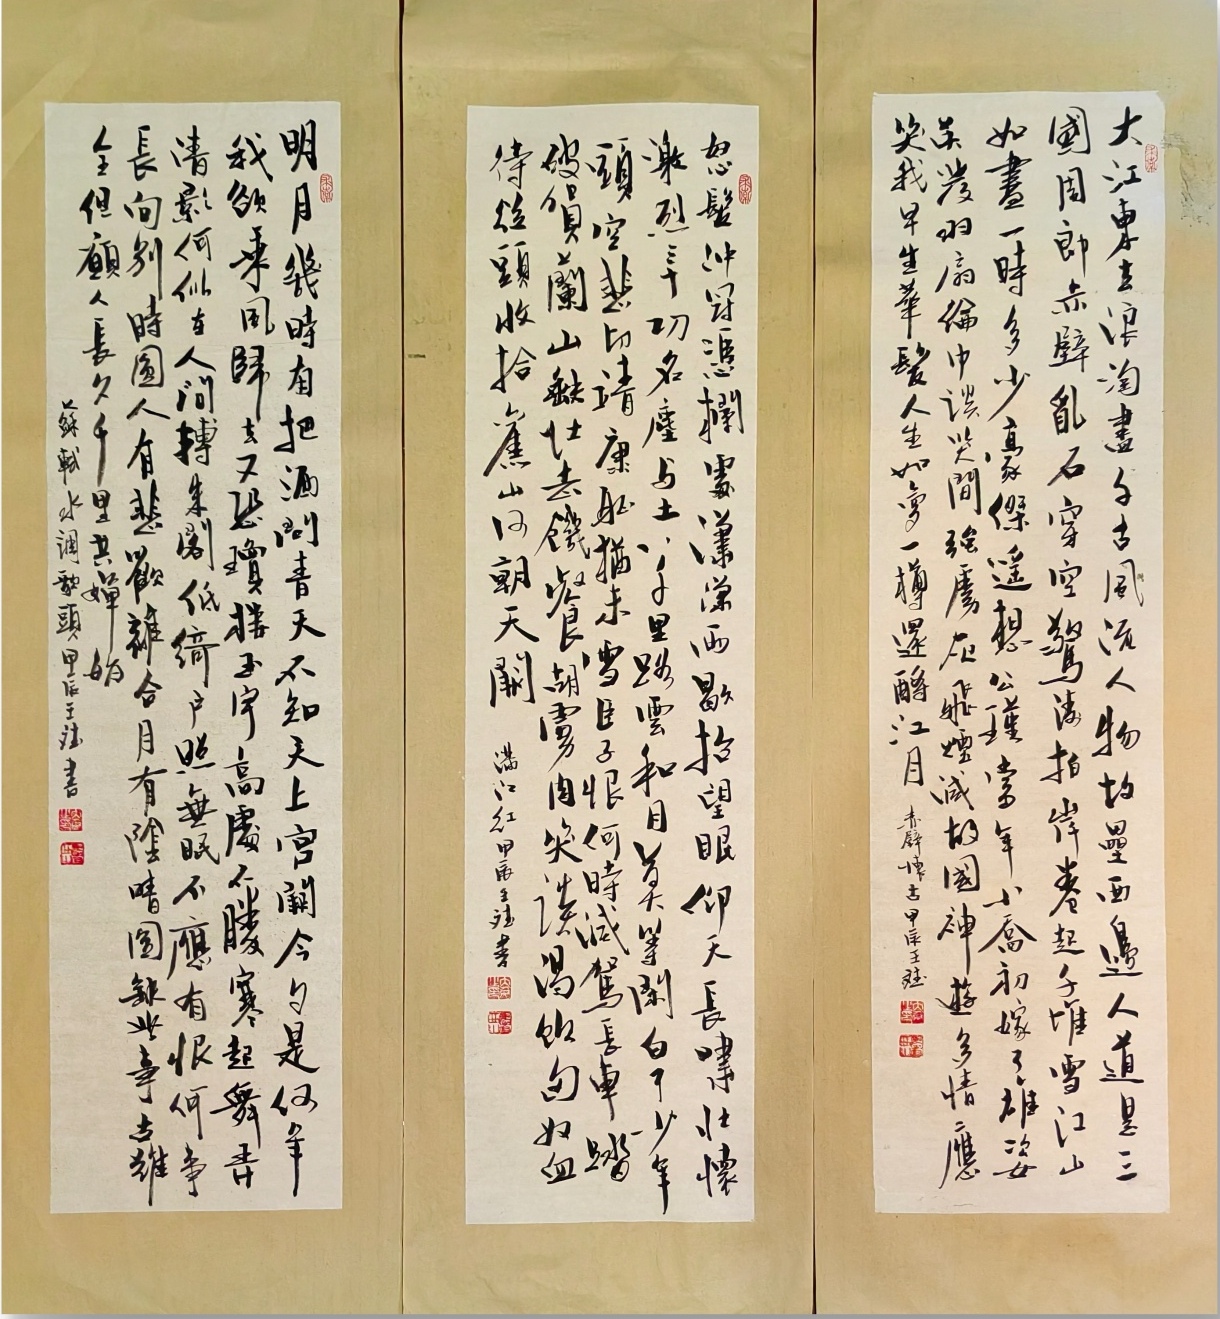 大江東去浪淘盡千古風流人物故壘西邊人道是三
國周郎赤壁亂石穿空驚濤拍岸卷起千堆雪江山
如畫一時多少豪傑遙想公瑾當年小喬初嫁了雄姿
英發羽扇綸巾談笑間強虜灰飛煙滅故國神遊多情應
笑我早生華髮人生如夢一樽還酹江月
赤壁懷古甲辰王
怒髮沖冠憑欄處瀟瀟雨歇抬望眼仰天長嘯壯懷
激烈三十功名塵与土八千里路雲和月莫等閑白了少年
頭空悲切靖康恥猶未雪臣子恨何時滅駕長車踏
破賀蘭山缺壯志飢餐胡虜肉笑談渴飲匈奴血
待從頭收拾舊山河朝天闕
滿江紅甲辰王書
明月幾時有把酒問青天不知天上宮闕今夕是何年
我欲乘風歸去又恐瓊樓玉宇高處不勝寒起舞弄
清影何似在人間轉朱閣低綺戶照無眠不應有恨何事
長向別時圓人有悲歡離合月有陰晴圓缺此事古難
全但願人長久千里共嬋娟
蘇軾水調歌頭甲辰王書